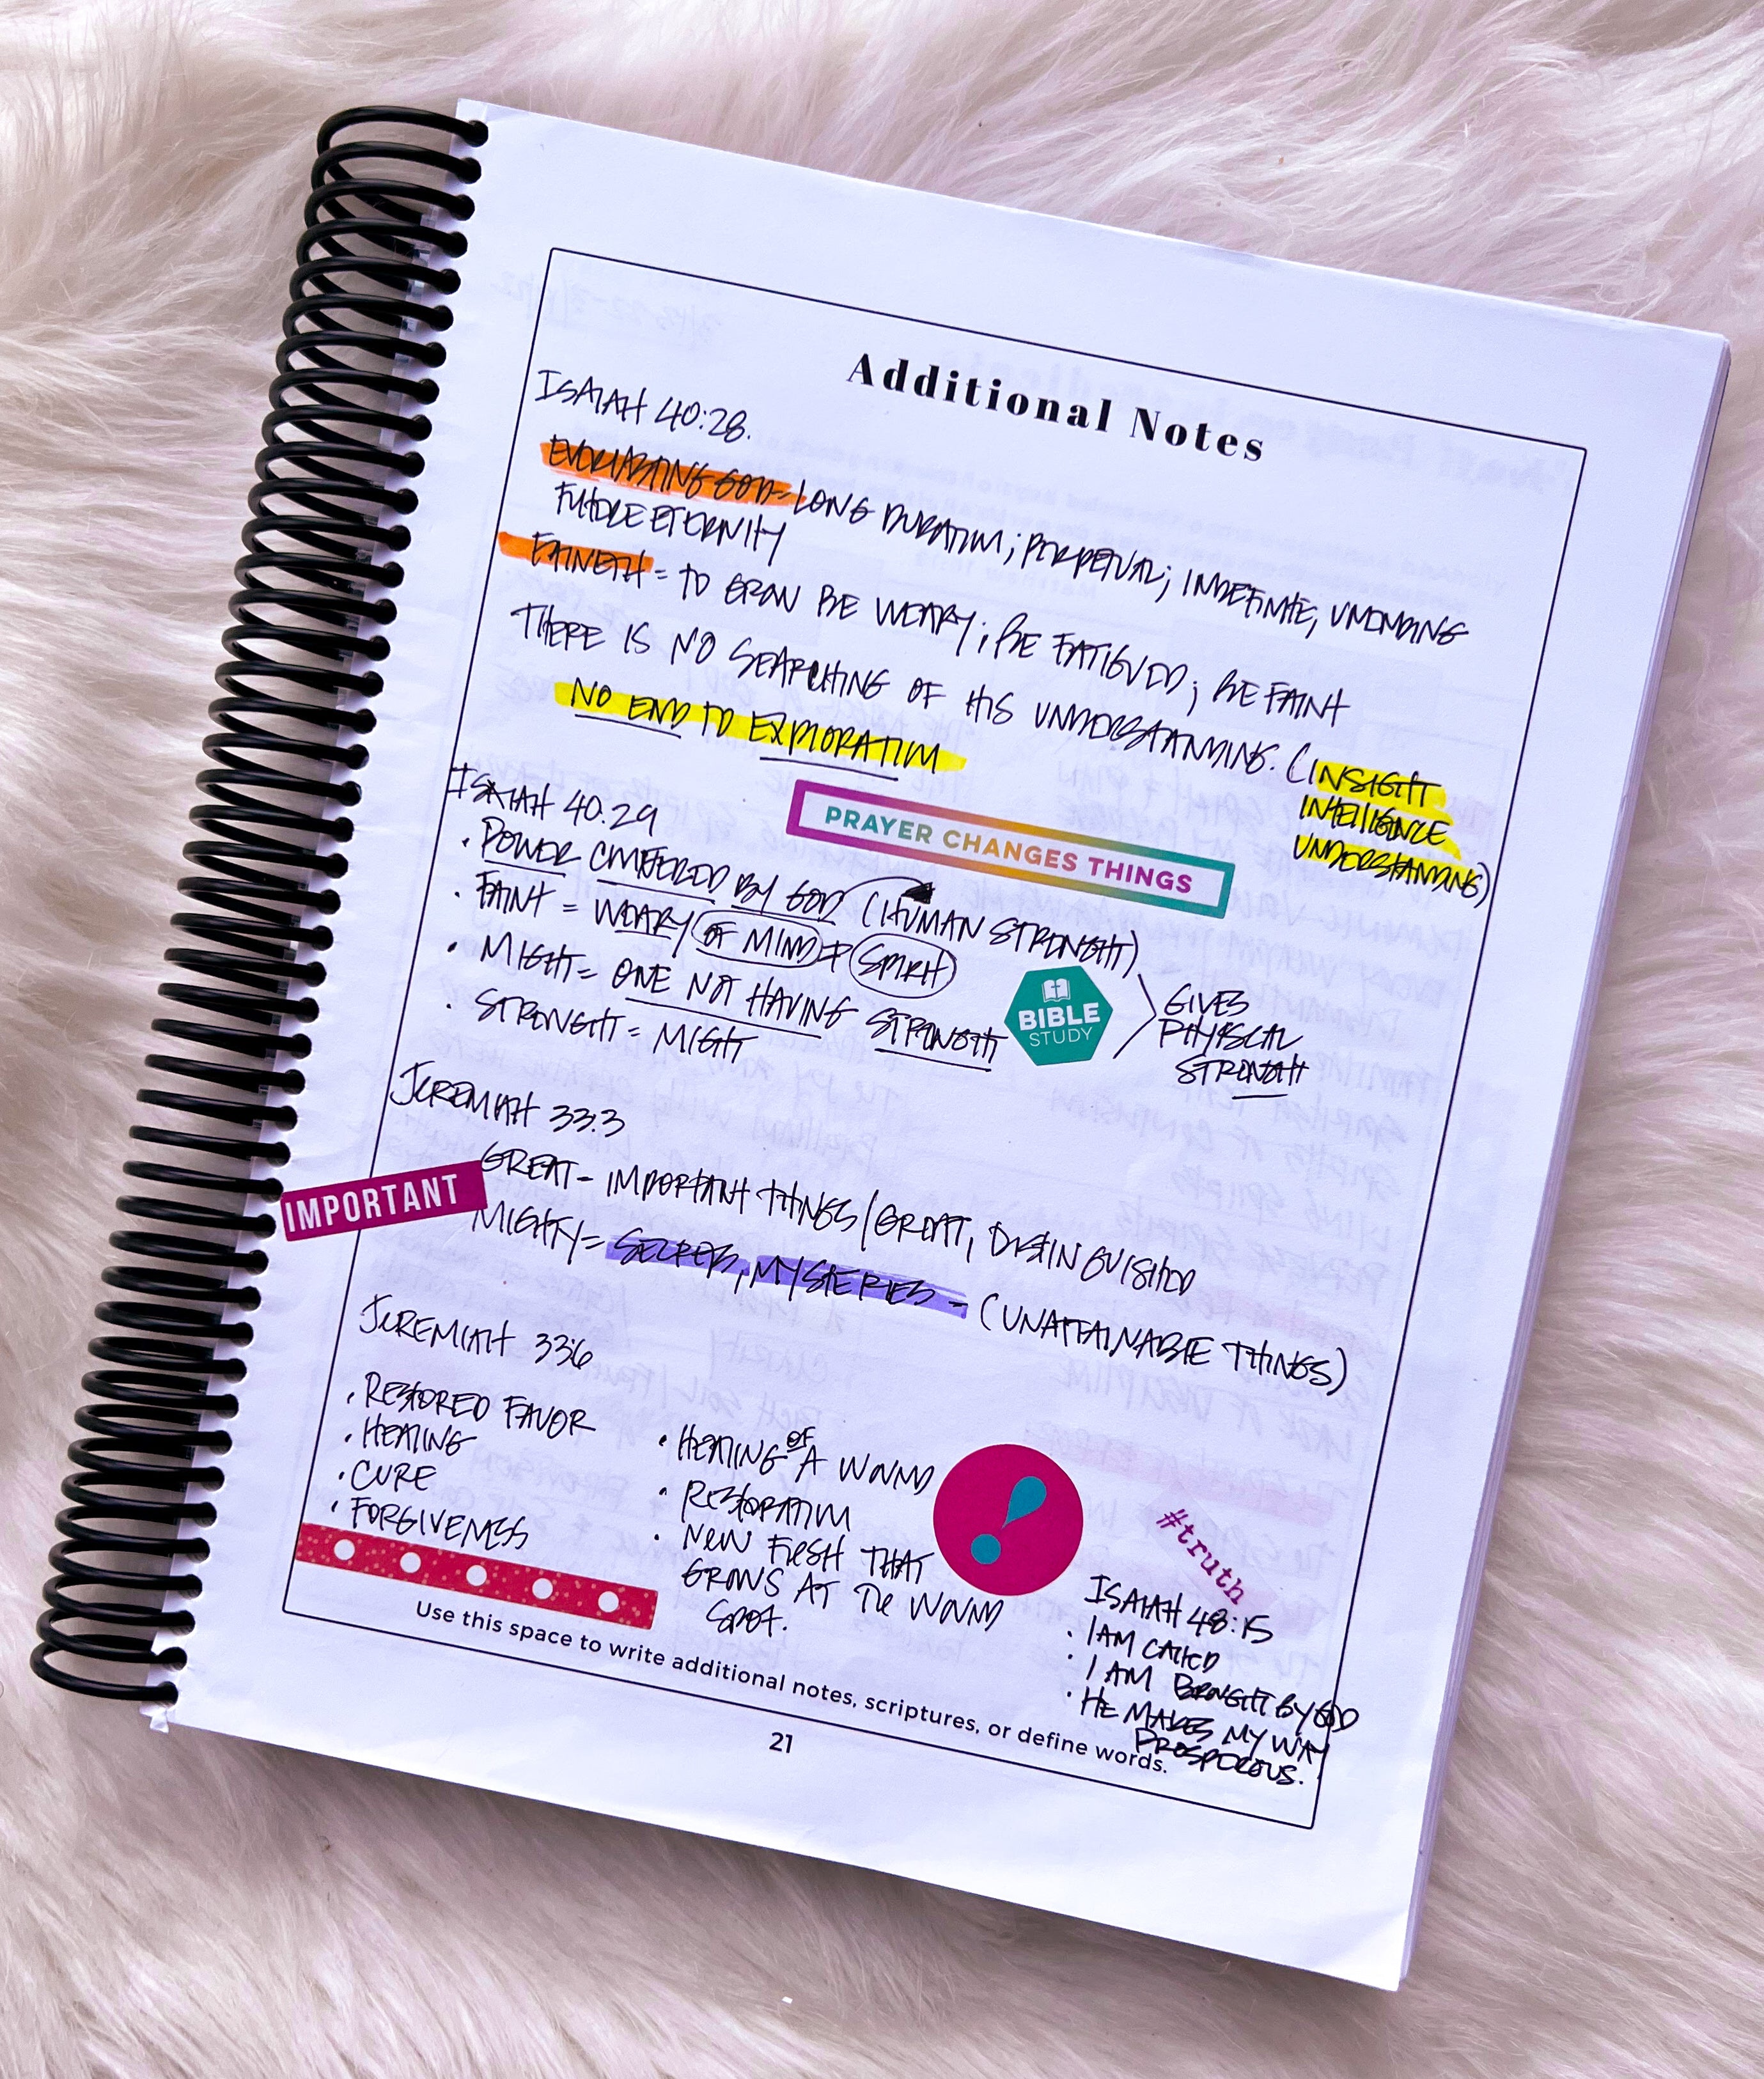 Additional Notes
ISAIAH 40:28.
EVERLASTING GOD = LONG DURATION; PERPETUAL; INDEFINITE, UNENDING
FUTURE ETERNITY
FAINETH = TO GROW BE WEARY; BE FATIGUED; BE FAINT
THERE IS NO SEARCHING OF HIS UNDERSTANDING. (INSIGHT
INTELLIGENCE
UNDERSTANDING)
NO END TO EXPLORATION
PRAYER CHANGES THINGS
ISAIAH 40:29
• POWER CONFERRED BY GOD (HUMAN STRENGHT)
• FAINT = WEARY OF MIND + SPIRIT
• MIGHT = ONE NOT HAVING STRENGTH
• STRENGHT = MIGHT
BIBLE
STUDY
GIVES
PHYISCAL
STRENGTH
JEREMIAH 33:3
IMPORTANT
GREAT - IMPORTANT THINGS / GREAT, DISTINGUISHED
MIGHTY = SECRETS, MYSTERIES - (UNATTAINABLE THINGS)
JEREMIAH 33:6
• RESTORED FAVOR
• HEALING
• CURE
• FORGIVENESS
• HEALING OF A WOUND
• RESTORATION
• NEW FLESH THAT
GROWS AT THE WOUND
SPOT.
#truth
ISAIAH 48:15
• I AM CALLED
• I AM BROUGHT BY GOD
• HE MAKES MY WAY
PROSPEROUS.
Use this space to write additional notes, scriptures, or define words.
21